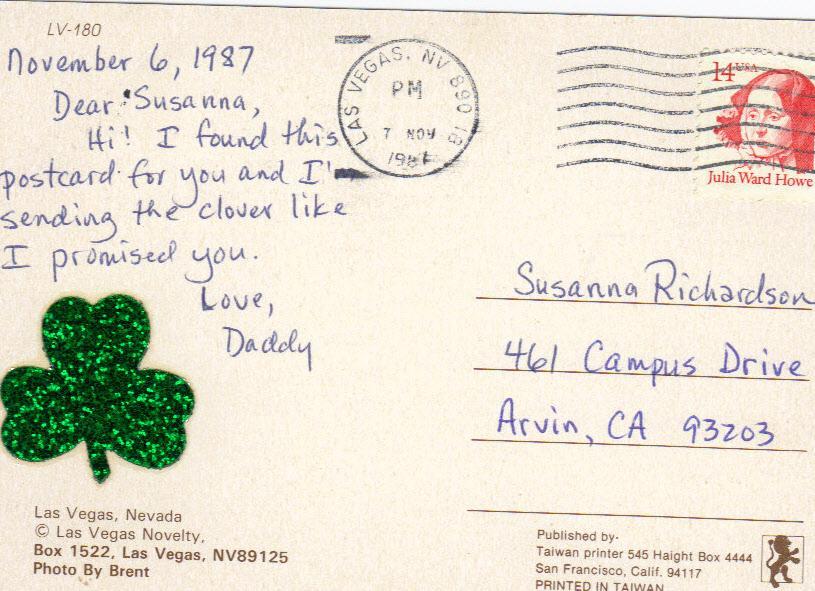 LV-180
November 6, 1987
Dear Susanna,
Hi! I found this
postcard for you and I'
sending the clover like
I promised you.
Love,
Daddy
LAS VEGAS, NV 890 18
PM
7 NOV
1987
14 USA
Julia Ward Howe
Susanna Richardson
461 Campus Drive
Arvin, CA 93203
Las Vegas, Nevada
© Las Vegas Novelty,
Box 1522, Las Vegas, NV89125
Photo By Brent
Published by-
Taiwan printer 545 Haight Box 4444
San Francisco, Calif. 94117
PRINTED IN TAIWAN